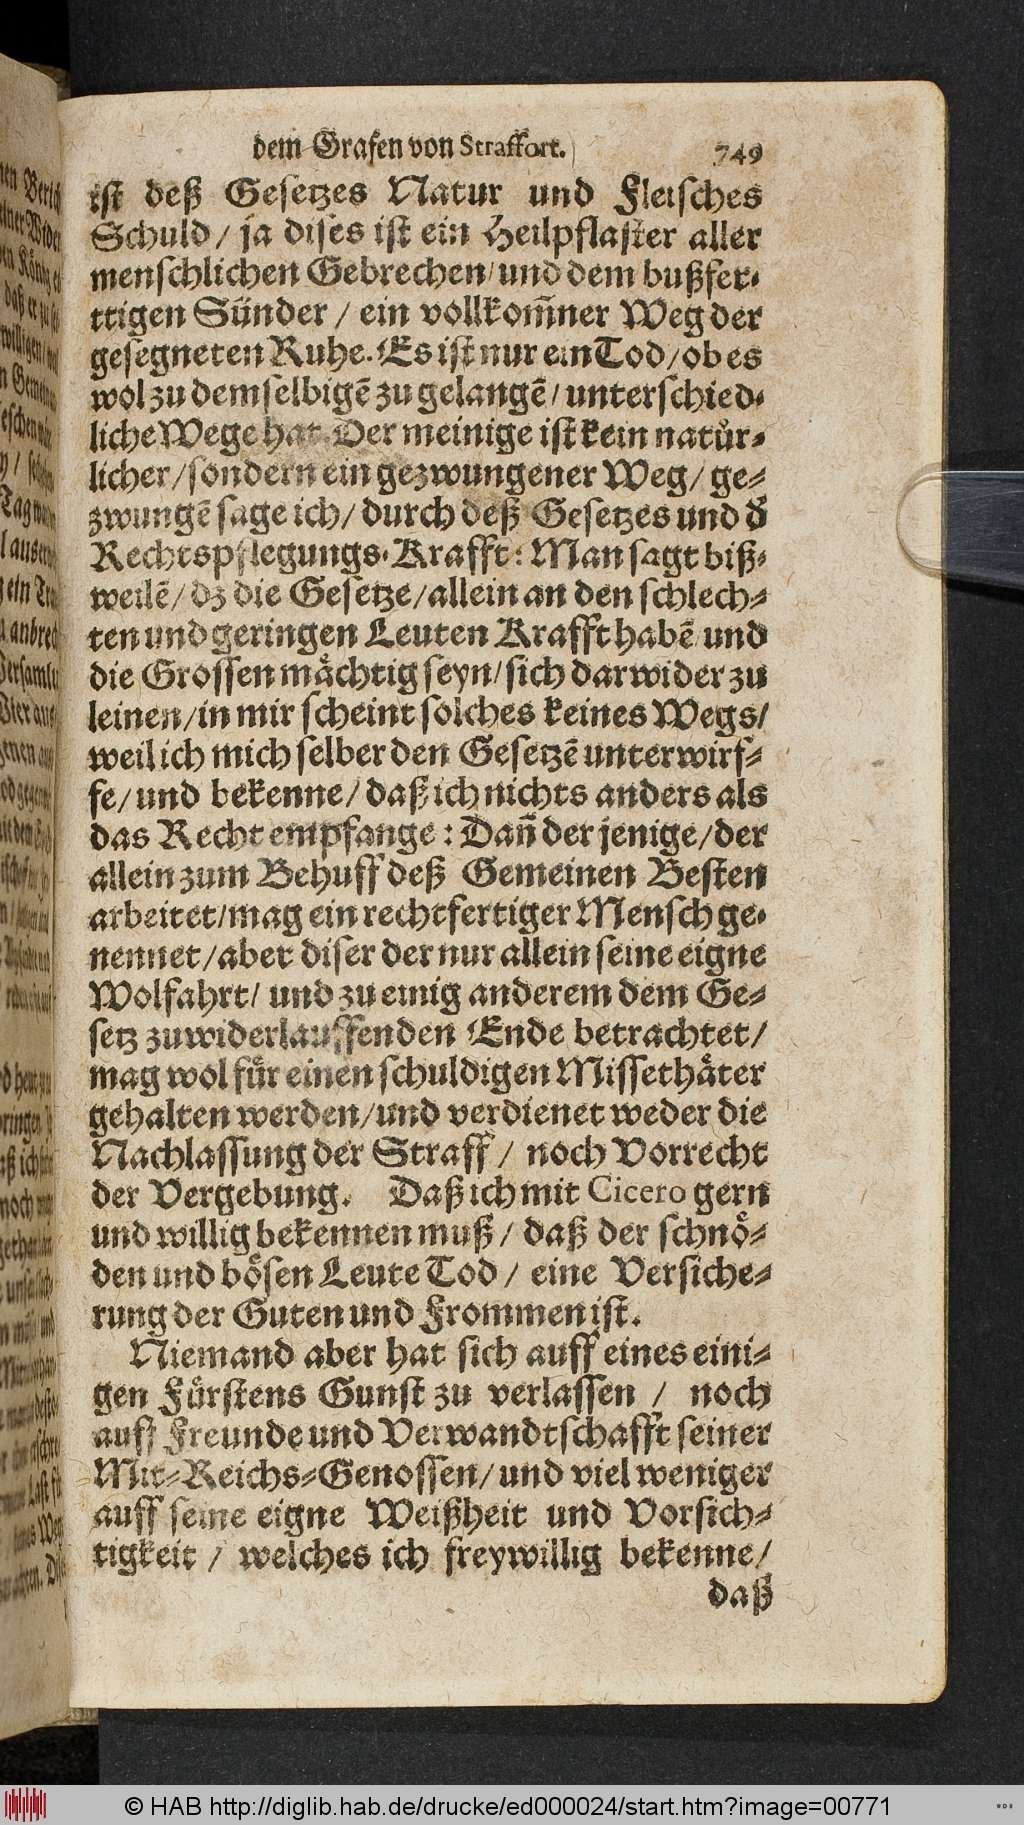 dem Grafen von Straffort. 749
ist deß Gesetzes Natur und Fleisches
Schuld / ja dises ist ein Heilpflaster aller
menschlichen Gebrechen / und dem bußfer-
ttigen Sünder / ein vollkom̃ner Weg der
gesegneten Ruhe. Es ist nur ein Tod / ob es
wol zu demselbigẽ zu gelangẽ / unterschied-
liche Wege hat. Der meinige ist kein natuͤr-
licher / sondern ein gezwungener Weg / ge-
zwungẽ sage ich / durch deß Gesetzes und d̕
Rechtspflegungs-Krafft: Man sagt biß-
weilẽ / dz die Gesetze / allein an den schlech-
ten und geringen Leuten Krafft habẽ / und
die Grossen maͤchtig seyn / sich darwider zu
leinen / in mir scheint solches keines Wegs /
weil ich mich selber den Gesetzẽ unterwirf-
fe / und bekenne / daß ich nichts anders als
das Recht empfange: Dañ der jenige / der
allein zum Behuff deß Gemeinen Besten
arbeitet / mag ein rechtfertiger Mensch ge-
nennet / aber diser der nur allein seine eigne
Wolfahrt / und zu einig anderem dem Ge-
setz zuwiderlauffenden Ende betrachtet /
mag wol fuͤr einen schuldigen Missethaͤter
gehalten werden / und verdienet weder die
Nachlassung der Straff / noch Vorrecht
der Vergebung. Daß ich mit Cicero gern
und willig bekennen muß / daß der schnoͤ-
den und boͤsen Leute Tod / eine Versiche-
rung der Guten und Frommen ist.
Niemand aber hat sich auff eines eini-
gen Fuͤrstens Gunst zu verlassen / noch
auff Freunde und Verwandtschafft seiner
Mit-Reichs-Genossen / und viel weniger
auff seine eigne Weißheit und Vorsich-
tigkeit / welches ich freywillig bekenne /
daß
© HAB http://diglib.hab.de/drucke/ed000024/start.htm?image=00771